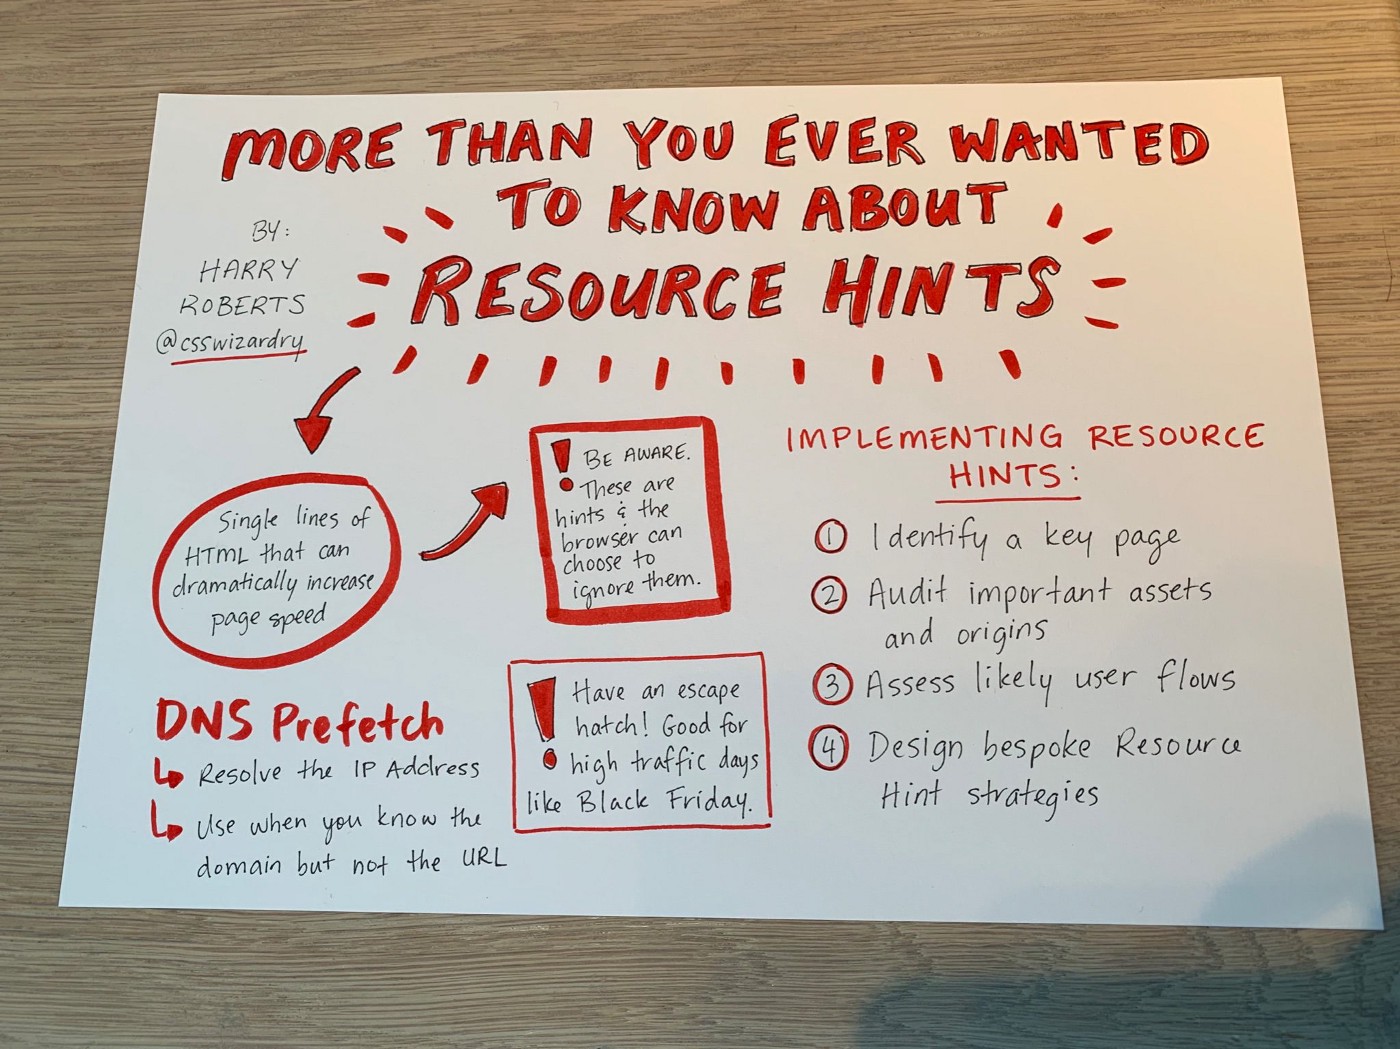 MORE THAN YOU EVER WANTED
TO KNOW ABOUT
RESOURCE HINTS
BY:
HARRY
ROBERTS
@csswizardry
Single lines of
HTML that can
dramatically increase
page speed
! BE AWARE.
These are
hints & the
browser can
choose to
ignore them.
DNS Prefetch
Resolve the IP Address
Use when you know the
domain but not the URL
! Have an escape
hatch! Good for
high traffic days
like Black Friday.
IMPLEMENTING RESOURCE
HINTS:
1 Identify a key page
2 Audit important assets
and origins
3 Assess likely user flows
4 Design bespoke Resource
Hint strategies